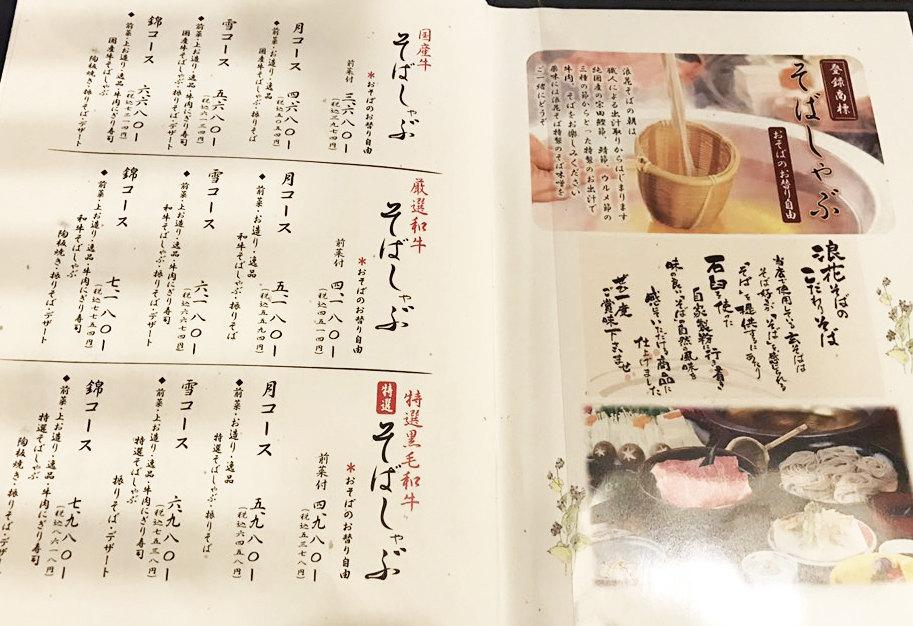 登録商標
そばしゃぶ
おそばのお替り自由
浪花そばの朝は、
職人による出汁取りからはじまります
純国産の宗田鰹節、鯖節、ウルメ節の
三種の節からとった特製のお出汁で
牛肉、そばをお楽しみください
薬味には浪花そば特製のそば味噌を
ご一緒にどうぞ
浪花そばの
こだわりそば
当店で使用している玄そばは
そば好きが「そば」を感じられる
「そば」を提供するにあたり
石臼を使った
自家製粉に行き着き
味の良い、そばの自然の風味を
感じていただける商品に
仕上げました
是非一度
ご賞味下さいませ
国産牛
そばしゃぶ
*おそばのお替り自由
前菜付 三、六八〇ー
(税込三九七四円)
月コース 四、六八〇ー
◆前菜・お造り・逸品
国産牛そばしゃぶ・振りそば
雪コース 五、六八〇ー
(税込六一三四円)
◆前菜・上お造り・逸品・牛肉にぎり寿司
国産牛そばしゃぶ・振りそば・デザート
錦コース 六、六八〇ー
(税込七二一四円)
◆前菜・上お造り・逸品・牛肉にぎり寿司
国産牛そばしゃぶ
陶板焼き・振りそば・デザート
厳選和牛
そばしゃぶ
*おそばのお替り自由
前菜付 四、一八〇ー
(税込四五一四円)
月コース 五、一八〇ー
(税込五五九四円)
◆前菜・お造り・逸品
和牛そばしゃぶ・振りそば
雪コース 六、一八〇ー
(税込六六七四円)
◆前菜・上お造り・逸品・牛肉にぎり寿司
和牛そばしゃぶ・振りそば・デザート
錦コース 七、一八〇ー
(税込七七五四円)
◆前菜・上お造り・逸品・牛肉にぎり寿司
和牛そばしゃぶ
陶板焼き・振りそば・デザート
特選黒毛和牛
特選
そばしゃぶ
*おそばのお替り自由
前菜付 四、九八〇ー
(税込五三七八円)
月コース 五、九八〇ー
(税込六四五八円)
◆前菜・お造り・逸品
特選そばしゃぶ・振りそば
雪コース 六、九八〇ー
(税込七五三八円)
◆前菜・上お造り・逸品・牛肉にぎり寿司
特選そばしゃぶ
振りそば・デザート
錦コース 七、九八〇ー
(税込八六一八円)
◆前菜・上お造り・逸品・牛肉にぎり寿司
特選そばしゃぶ
陶板焼き・振りそば・デザート